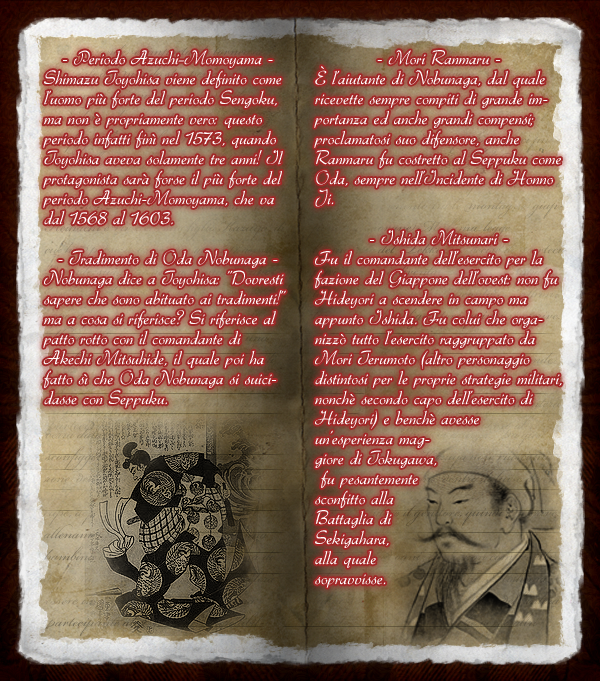 - Periodo Azuchi-Momoyama -
Shimazu Toyohisa viene definito come
l'uomo più forte del periodo Sengoku,
ma non è propriamente vero: questo
periodo infatti finì nel 1573, quando
Toyohisa aveva solamente tre anni! Il
protagonista sarà forse il più forte del
periodo Azuchi-Momoyama, che va
dal 1568 al 1603.
- Tradimento di Oda Nobunaga -
Nobunaga dice a Toyohisa: "Dovresti
sapere che sono abituato ai tradimenti!"
ma a cosa si riferisce? Si riferisce al
patto rotto con il comandante di
Akechi Mitsuhide, il quale poi ha
fatto sì che Oda Nobunaga si suici-
dasse con Seppuku.
- Mori Ranmaru -
È l'aiutante di Nobunaga, dal quale
ricevette sempre compiti di grande im-
portanza ed anche grandi compensi;
proclamatosi suo difensore, anche
Ranmaru fu costretto al Seppuku come
Oda, sempre nell'Incidente di Honno
Ji.
- Ishida Mitsunari -
Fu il comandante dell'esercito per la
fazione del Giappone dell'ovest: non fu
Hideyori a scendere in campo ma
appunto Ishida. Fu colui che orga-
nizzò tutto l'esercito raggruppato da
Mori Terumoto (altro personaggio
distintosi per le proprie strategie militari,
nonchè secondo capo dell'esercito di
Hideyori) e benchè avesse
un'esperienza mag-
giore di Tokugawa,
fu pesantemente
sconfitto alla
Battaglia di
Sekigahara,
alla quale
sopravvisse.